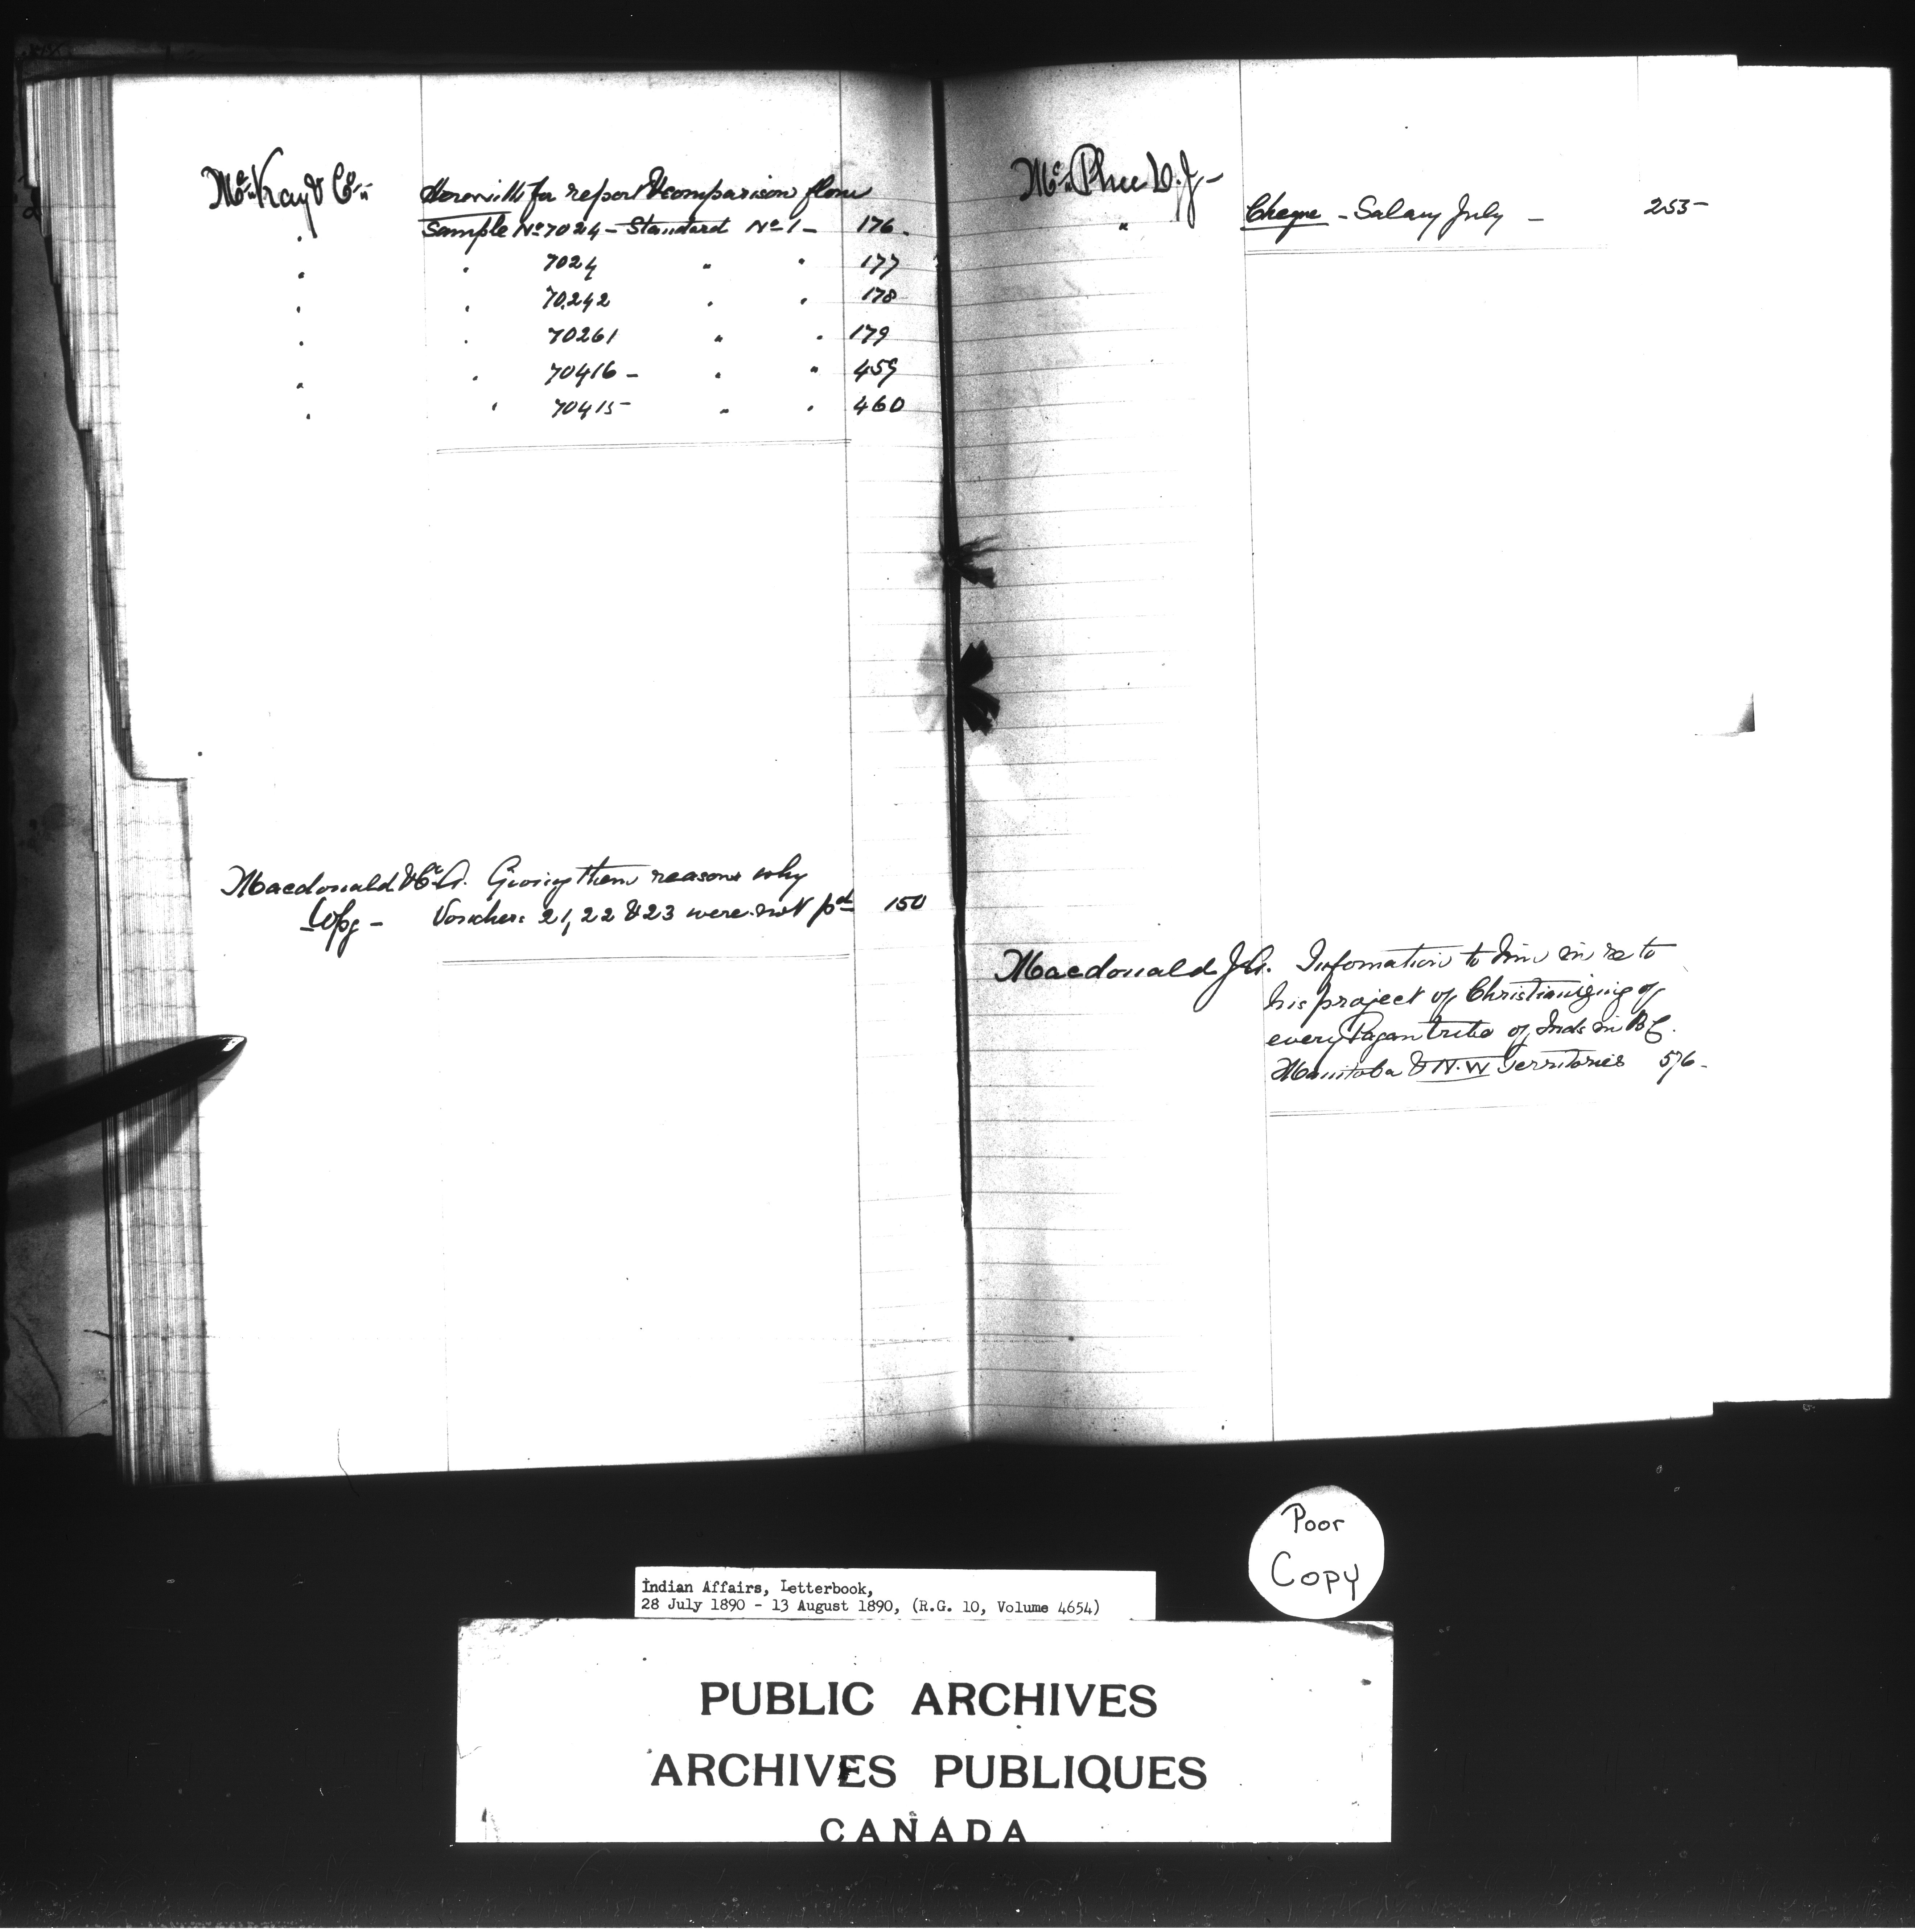 Mc Kay & Co Herewith for report & comparison flour
" Sample No 7024 - Standard No 1 - 176.
" " 7024 " " 177
" " 70242 " " 178
" " 70261 " " 179
" " 70416 - " " 459
" " 70415 - " " 460
Macdonald & Co A. Giving them reasons why
Wpg - Vouchers 21, 22 & 23 were not pd 150
Mc Phee D.J -
" Cheque - Salary July - 253 -
Macdonald J.A. Infomation to him in re to
his project of Christianizing of
every Pagan tribe of Inds in B C.
Manitoba & N.W Territories 576 -
Poor
Copy
Indian Affairs, Letterbook,
28 July 1890 - 13 August 1890, (R.G. 10, Volume 4654)
PUBLIC ARCHIVES
ARCHIVES PUBLIQUES
CANADA